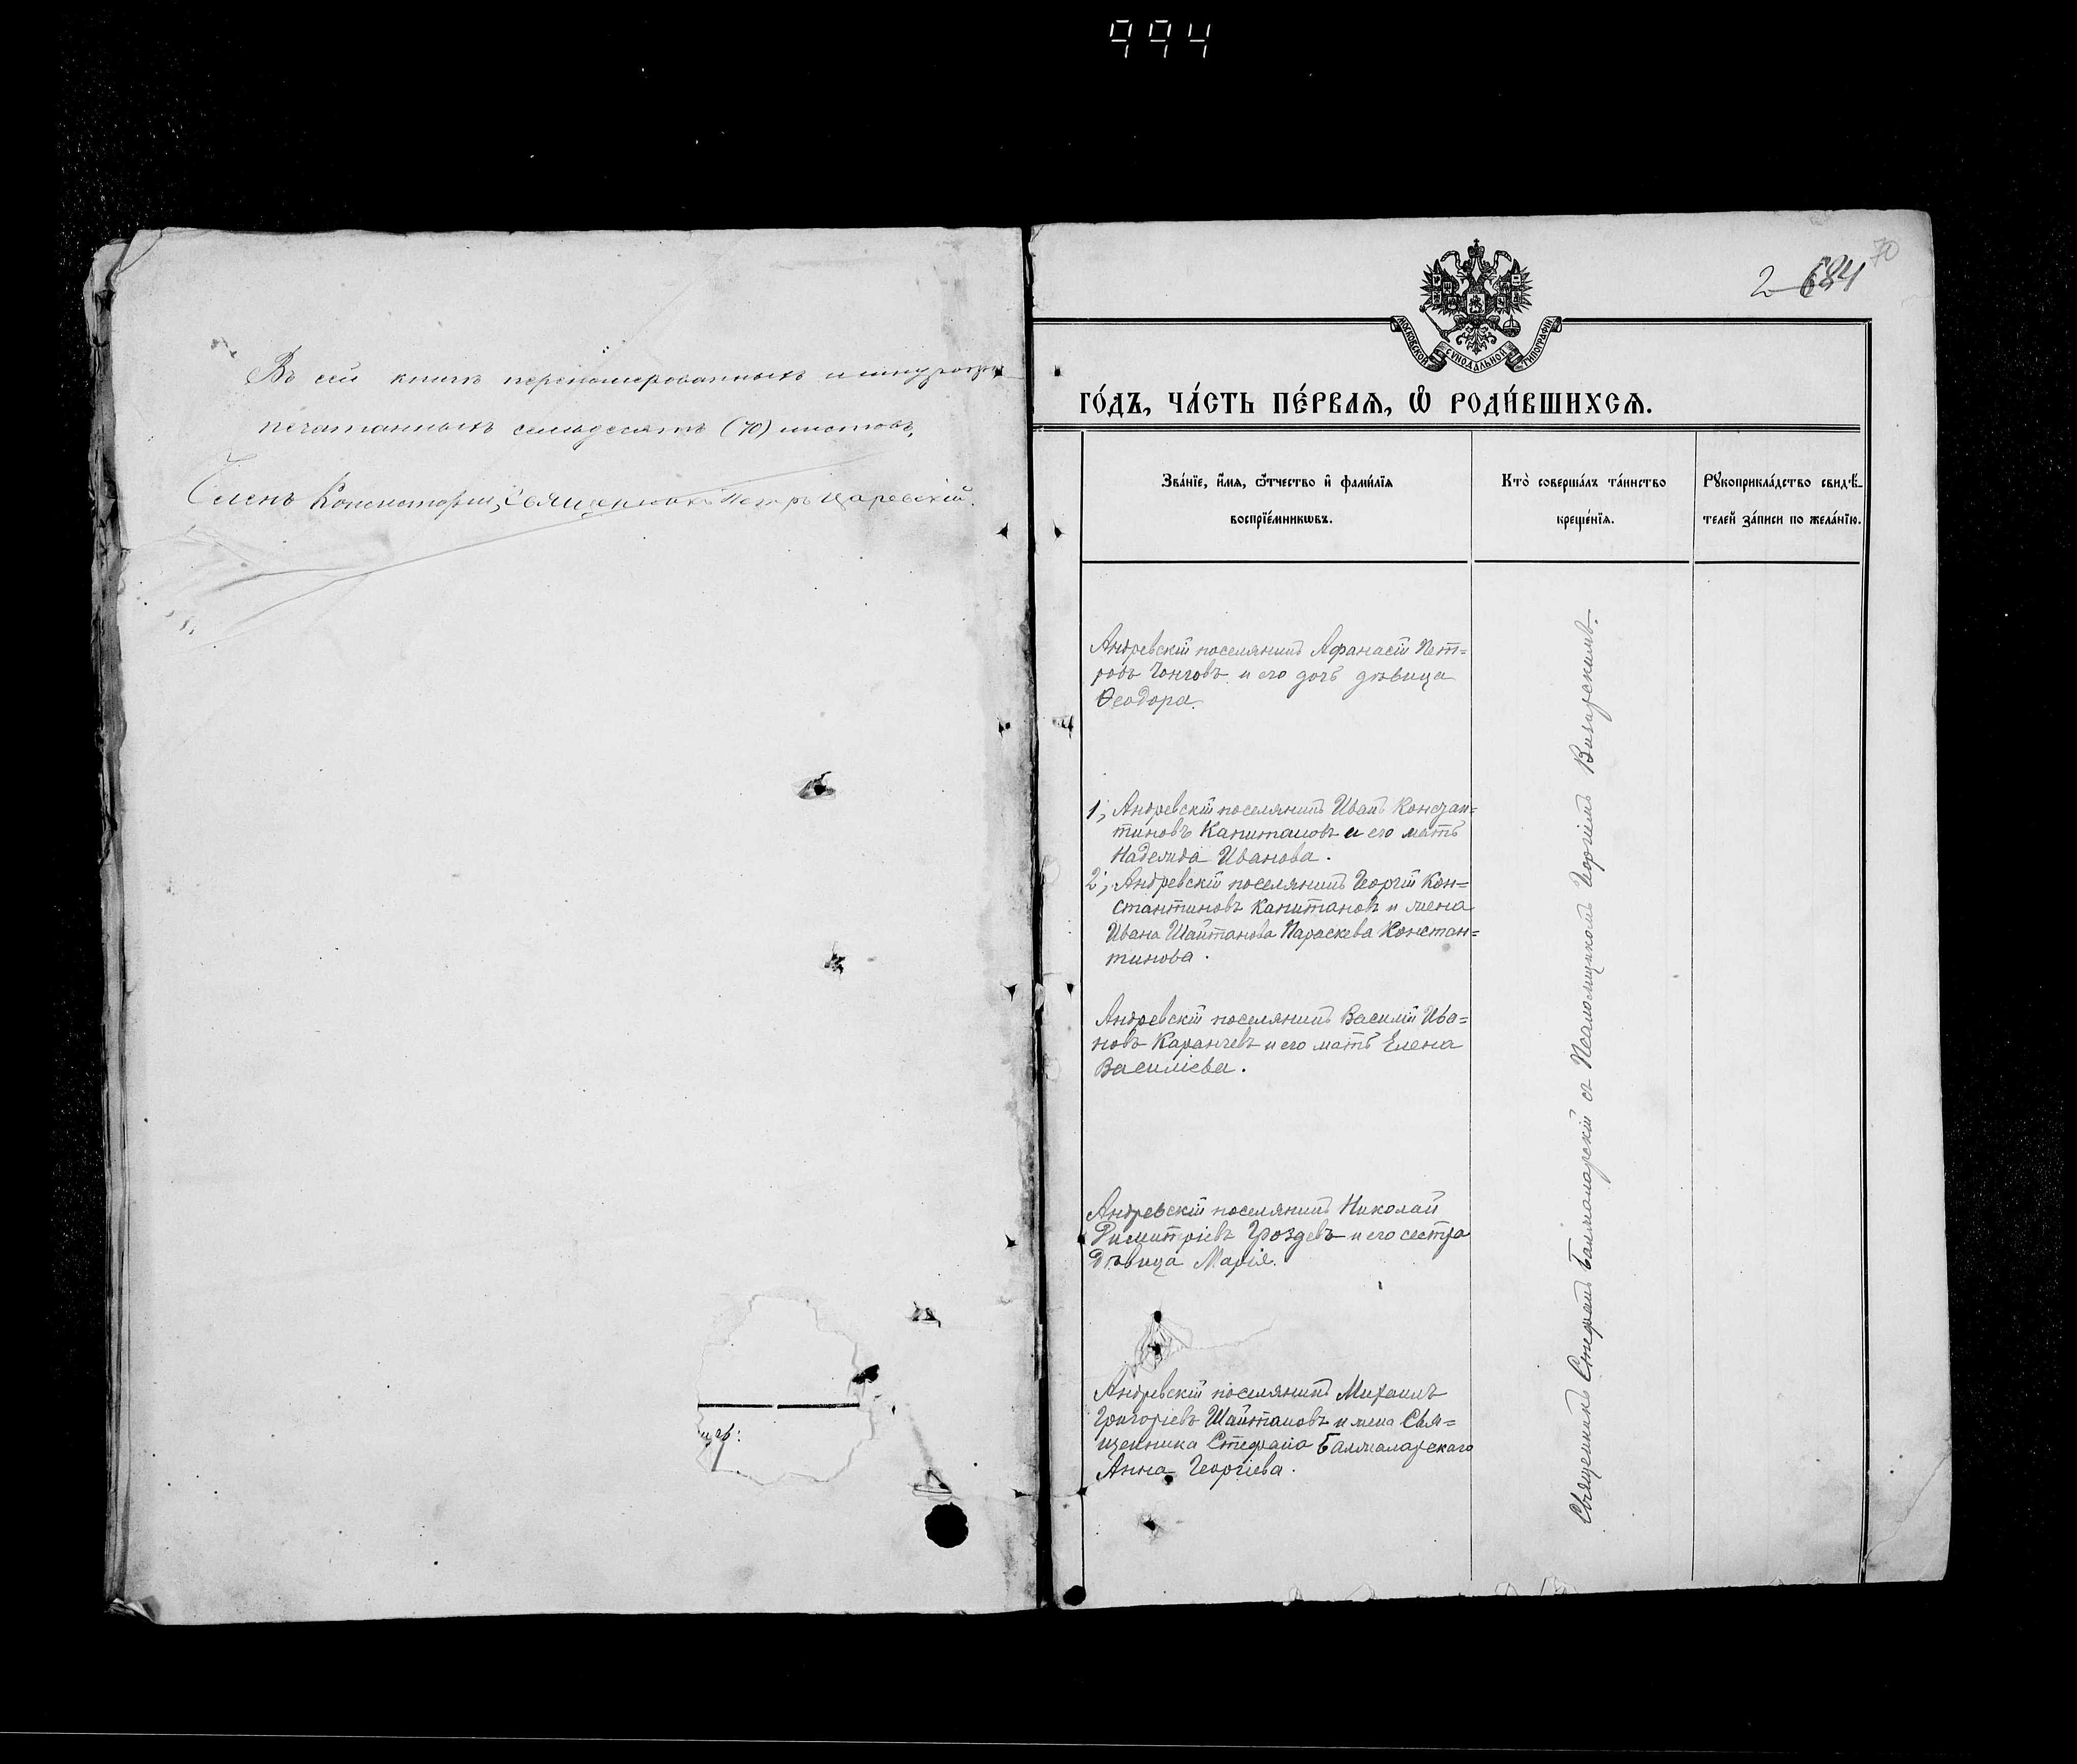 994
Въ сей книгѣ перенумерованныхъ и шнуроза-
печатанныхъ семьдесятъ (70) листовъ,
Членъ Консисторіи, Священникъ Петръ Царевскій.
щеъ:
70
2 684
МОСКОВСКОЙ СѴНОДАЛЬНОЙ ТИПОГРАФІИ
ГО́ДЪ, ЧА́СТЬ ПЕ́РВАѦ, Ѿ РОДИ́ВШИХСѦ.
Зва́нїе, и҆́мѧ, ѻ҆́тчество и҆ фами́лїѧ
воспрїе́мникѡвъ.
Кто̀ соверша́лъ та́инство
креще́нїѧ.
Рꙋкоприкла́дство свидѣ́-
телей за́писи по жела́нїю.
Андревскій поселянинъ Афанасій Пет=
ровъ Чонговъ и его дочь дѣвица
Ѳеодора.
1, Андревскій поселянинъ Иванъ Констан=
тиновъ Капитановъ и его мать
Надежда Иванова.
2, Андревскій поселянинъ Георгій Кон=
стантиновъ Капитановъ и жена
Ивана Шайтанова Параскева Констан=
тинова.
Андревскій поселянинъ Василій Ива=
новъ Каранчевъ и его мать Елена
Василіева.
Андревскій поселянинъ Николай
Димитріевъ Гроздевъ и его сестра
дѣвица Марія.
Андревскій поселянинъ Михаилъ
Григоріевъ Шайтановъ и жена Свя=
щенника Стефана Балжаларскаго
Анна Георгіева.
Священникъ Стефанъ Балжаларскій съ Псаломщикомъ Георгіемъ